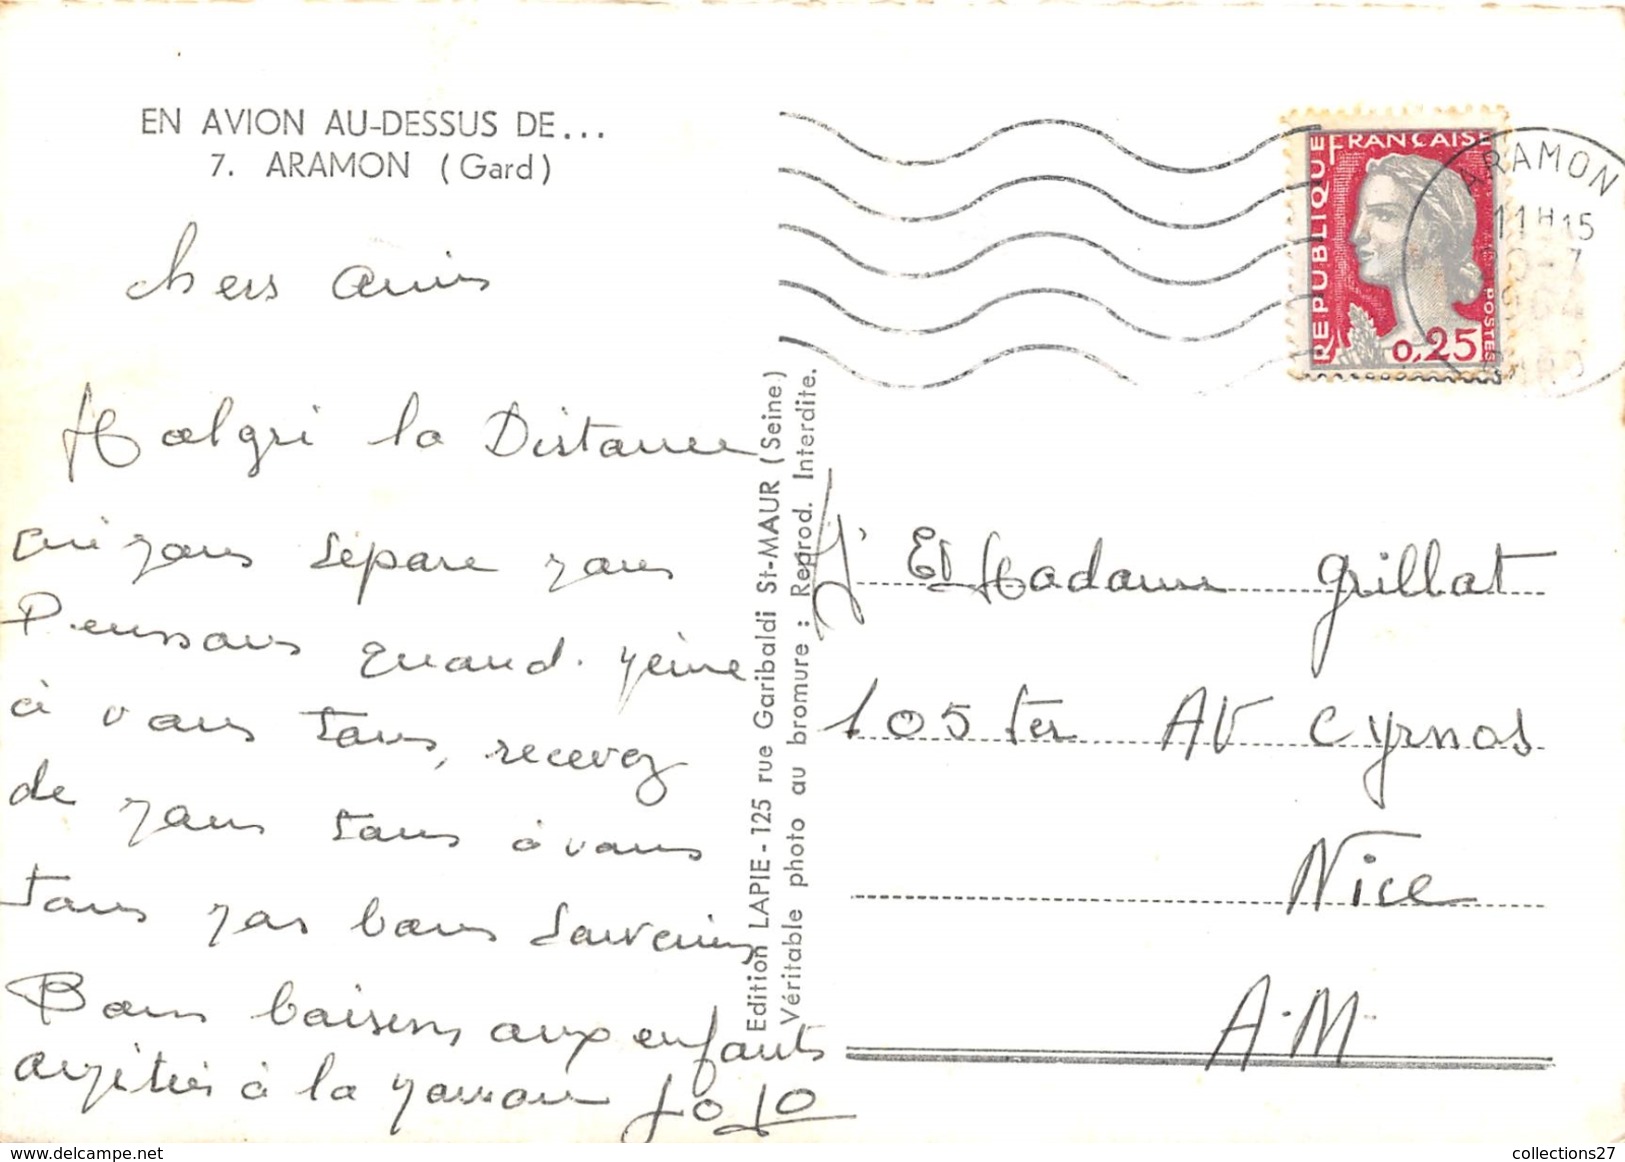 EN AVION AU-DESSUS DE...
7. ARAMON (Gard)
chers amis
Malgri la Distance
qui nous sépare nous
Penssons quand. même
à vous tous, recevez
de nous tous à vous
tous nos bons souvenirs
Bons baisers aux enfants
amitiés à la
Edition LAPIE - 125 rue Garibaldi St-MAUR (Seine)
Véritable photo au bromure : Reprod. Interdite.
RÉPUBLIQUE FRANÇAISE
POSTES
0,25
ARAMON
11H15
GARD
Et Madame Grillat
105 ter AV Cyrnos
Nice
A.-M-
collections27
www.delcampe.net